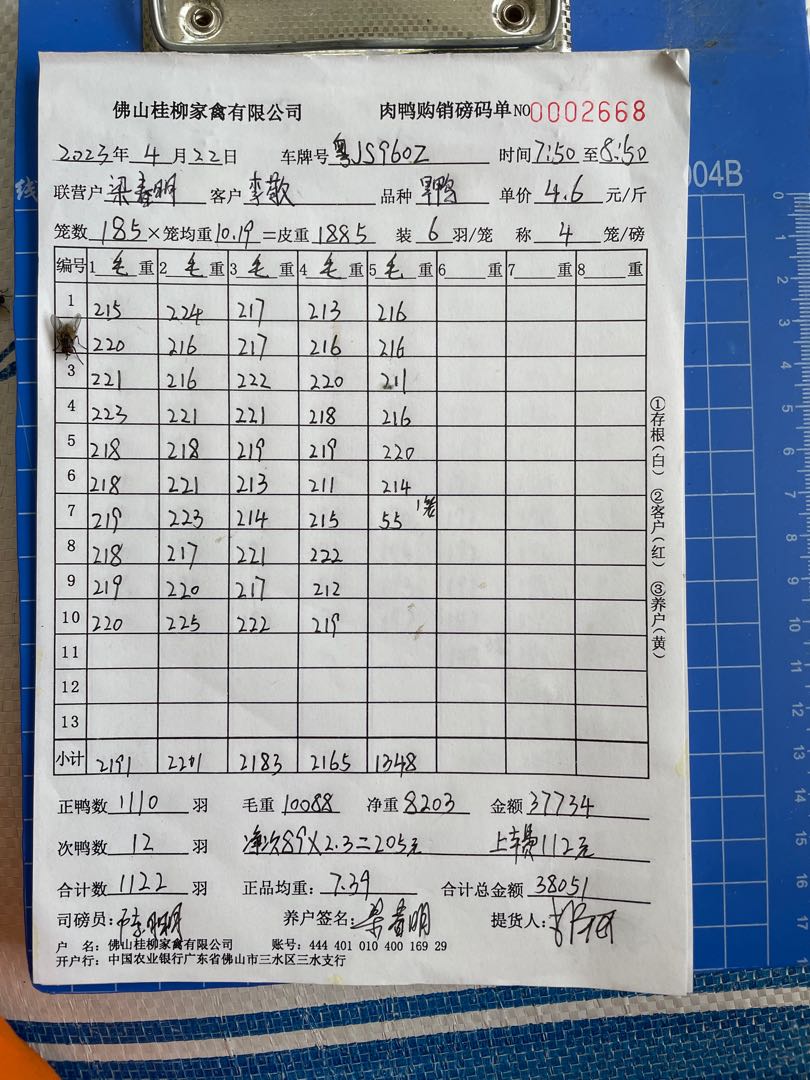 佛山桂柳家禽有限公司 肉鸭购销磅码单 NO0002668
2023年 4 月 22 日 车牌号 粤JS960Z 时间 7:50 至 8:50
联营户 梁春明 客户 李歆 品种 旱鸭 单价 4.6 元/斤
笼数 185 × 笼均重 10.19 = 皮重 1885 装 6 羽/笼 称 4 笼/磅
编号 1 毛 重 2 毛 重 3 毛 重 4 毛 重 5 毛 重 6 重 7 重 8 重
1 215 224 217 213 216
220 216 217 216 216
3 221 216 222 220 211
4 223 221 221 218 216
5 218 218 219 219 220
6 218 221 213 211 214
7 219 223 214 215 55 1笼
8 218 217 221 222
9 219 220 217 212
10 220 225 222 219
11
12
13
小计 2191 2201 2183 2165 1348
正鸭数 1110 羽 毛重 10088 净重 8203 金额 37734
次鸭数 12 羽 净次89×2.3=205元 上车费112元
合计数 1122 羽 正品均重: 7.39 合计总金额 38051
司磅员: 养户签名: 梁春明 提货人:
户 名: 佛山桂柳家禽有限公司 账号: 444 401 010 400 169 29
开户行: 中国农业银行广东省佛山市三水区三水支行
①存根(白) ②客户(红) ③养户(黄)
线
004B
0
1
2
3
4
5
6
7
8
9
10
11
12
13
14
15
16
17